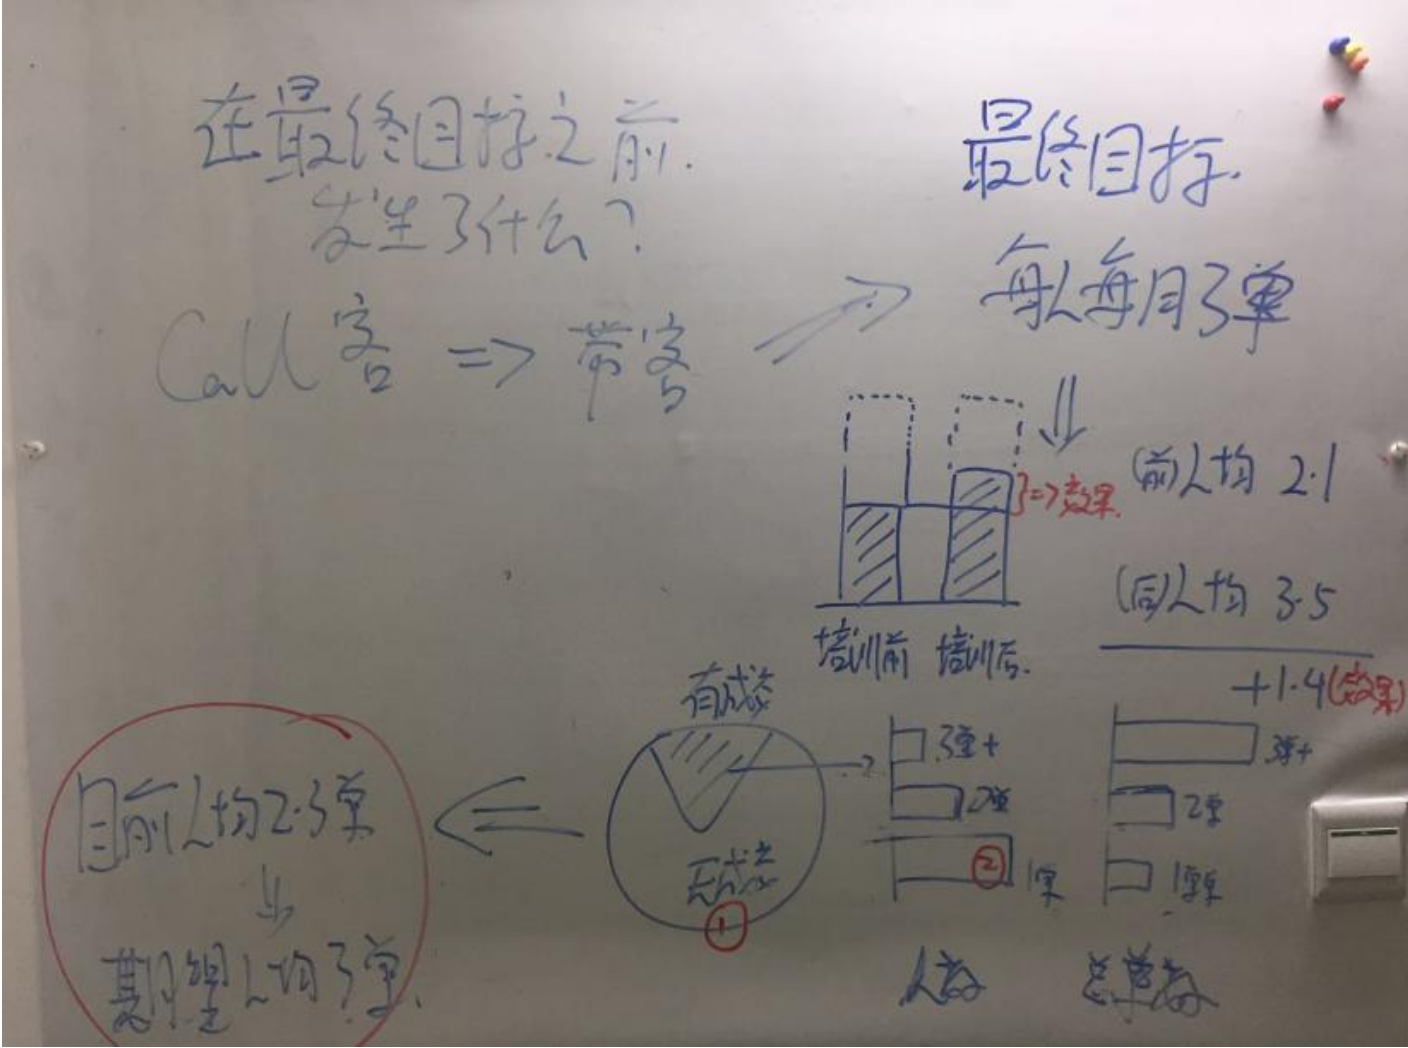 在最终目标之前.
发生了什么?
Call客 => 带客
最终目标.
每人每月3单
(前)人均 2.1
}=>效果.
(后)人均 3.5
+1.4(效果)
培训前 培训后.
有成交
无成交
①
3单+
2单
② 1单
人数
3单+
2单
1单
总单数
目前人均2.3单
期望人均3单.